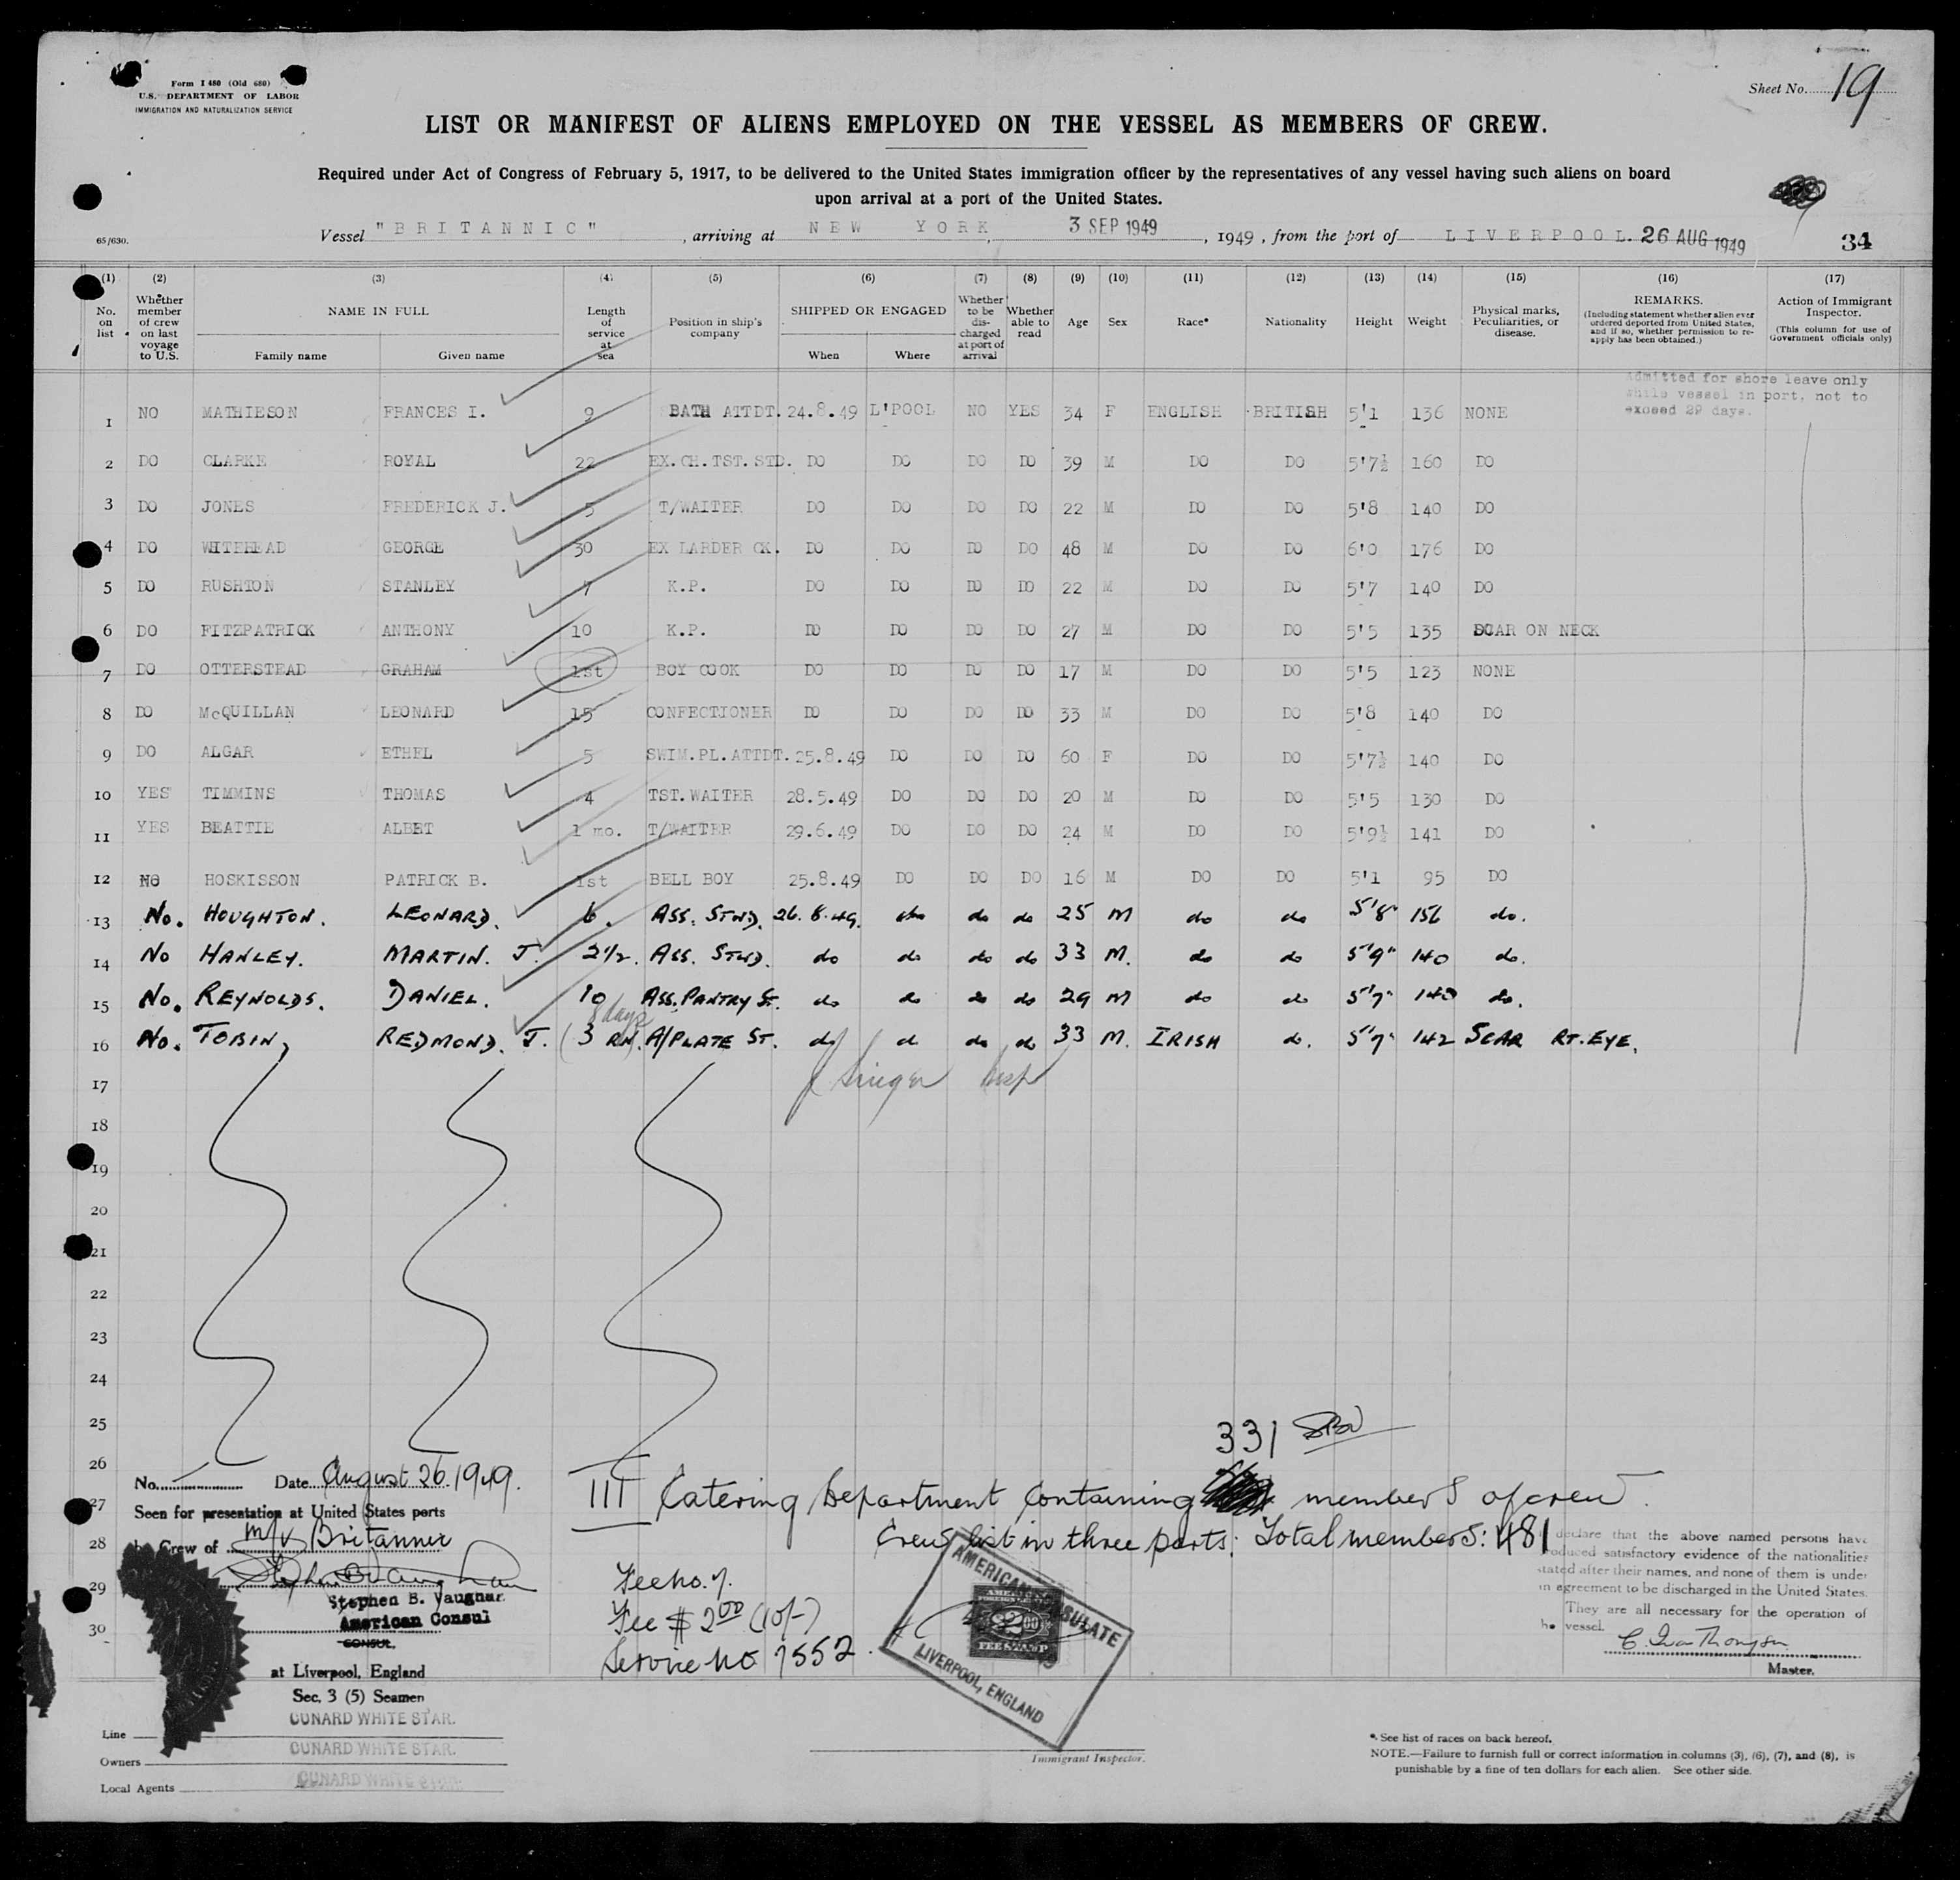 Form I 480 (Old 680)
U.S. DEPARTMENT OF LABOR
IMMIGRATION AND NATURALIZATION SERVICE
Sheet No. 19
LIST OR MANIFEST OF ALIENS EMPLOYED ON THE VESSEL AS MEMBERS OF CREW.
Required under Act of Congress of February 5, 1917, to be delivered to the United States immigration officer by the representatives of any vessel having such aliens on board
upon arrival at a port of the United States.
65/630.
Vessel "BRITANNIC", arriving at NEW YORK, 3 SEP 1949, 1949, from the port of LIVERPOOL. 26 AUG 1949
34
(1) No. on list
(2) Whether member of crew on last voyage to U.S.
(3) NAME IN FULL Family name Given name
(4) Length of service at sea
(5) Position in ship's company
(6) SHIPPED OR ENGAGED When Where
(7) Whether to be discharged at port of arrival
(8) Whether able to read
(9) Age
(10) Sex
(11) Race*
(12) Nationality
(13) Height
(14) Weight
(15) Physical marks, Peculiarities, or disease.
(16) REMARKS. (Including statement whether alien ever ordered deported from United States, and if so, whether permission to re-apply has been obtained.)
(17) Action of Immigrant Inspector. (This column for use of Government officials only)
Admitted for shore leave only
while vessel in port, not to
exceed 29 days.
1 NO MATHIESON FRANCES I. 9 BATH ATTDT. 24.8.49 L'POOL NO YES 34 F ENGLISH BRITISH 5'1 136 NONE
2 DO CLARKE ROYAL 22 EX.CH.TST.STD. DO DO DO DO 39 M DO DO 5'7½ 160 DO
3 DO JONES FREDERICK J. 5 T/WAITER DO DO DO DO 22 M DO DO 5'8 140 DO
4 DO WHITEHEAD GEORGE 30 EX LARDER CK. DO DO DO DO 48 M DO DO 6'0 176 DO
5 DO RUSHTON STANLEY 7 K.P. DO DO DO DO 22 M DO DO 5'7 140 DO
6 DO FITZPATRICK ANTHONY 10 K.P. DO DO DO DO 27 M DO DO 5'5 135 SCAR ON NECK
7 DO OTTERSTEAD GRAHAM 1st BOY COOK DO DO DO DO 17 M DO DO 5'5 123 NONE
8 DO McQUILLAN LEONARD 15 CONFECTIONER DO DO DO DO 33 M DO DO 5'8 140 DO
9 DO ALGAR ETHEL 5 SWIM.PL.ATTDT. 25.8.49 DO DO DO 60 F DO DO 5'7½ 140 DO
10 YES TIMMINS THOMAS 4 TST.WAITER 28.5.49 DO DO DO 20 M DO DO 5'5 130 DO
11 YES BEATTIE ALBET 1 mo. T/WAITER 29.6.49 DO DO DO 24 M DO DO 5'9½ 141 DO
12 NO HOSKISSON PATRICK B. 1st BELL BOY 25.8.49 DO DO DO 16 M DO DO 5'1 95 DO
13 No. HOUGHTON. LEONARD. 6. ASS. STWD. 26.8.49. do do do 25 M do do 5'8" 156 do.
14 No HANLEY. MARTIN. J. 2½. ASS. STWD. do do do do 33 M. do do 5'9" 140 do.
15 No. REYNOLDS. DANIEL. 10 ASS. PANTRY ST. do do do do 29 M do do 5'7" 140 do.
8 days
16 No. TOBIN, REDMOND. J. (3 RN.) A/PLATE ST. do do do do 33 M. IRISH do. 5'7" 142 SCAR RT. EYE.
17
18
19
20
21
22
23
24
25
26
27
28
29
30
331
No. Date August 26. 1949.
Seen for presentation at United States ports
by Crew of m/v Britannic
Stephen B. Vaughan
American Consul
CONSUL,
at Liverpool, England
Sec. 3 (5) Seamen
III Catering Department containing members of crew.
Crew list in three parts: Total members: 481
Fee no. 7.
Fee $ 2.00 (10/-)
Service No 7552.
AMERICAN CONSULATE
FEE STAMP
LIVERPOOL, ENGLAND
declare that the above named persons have
produced satisfactory evidence of the nationalities
stated after their names, and none of them is under
an agreement to be discharged in the United States.
They are all necessary for the operation of
he vessel.
Master.
Line CUNARD WHITE STAR.
Owners CUNARD WHITE STAR.
Local Agents CUNARD WHITE STAR.
Immigrant Inspector.
* See list of races on back hereof.
NOTE.—Failure to furnish full or correct information in columns (3), (6), (7), and (8), is
punishable by a fine of ten dollars for each alien. See other side.